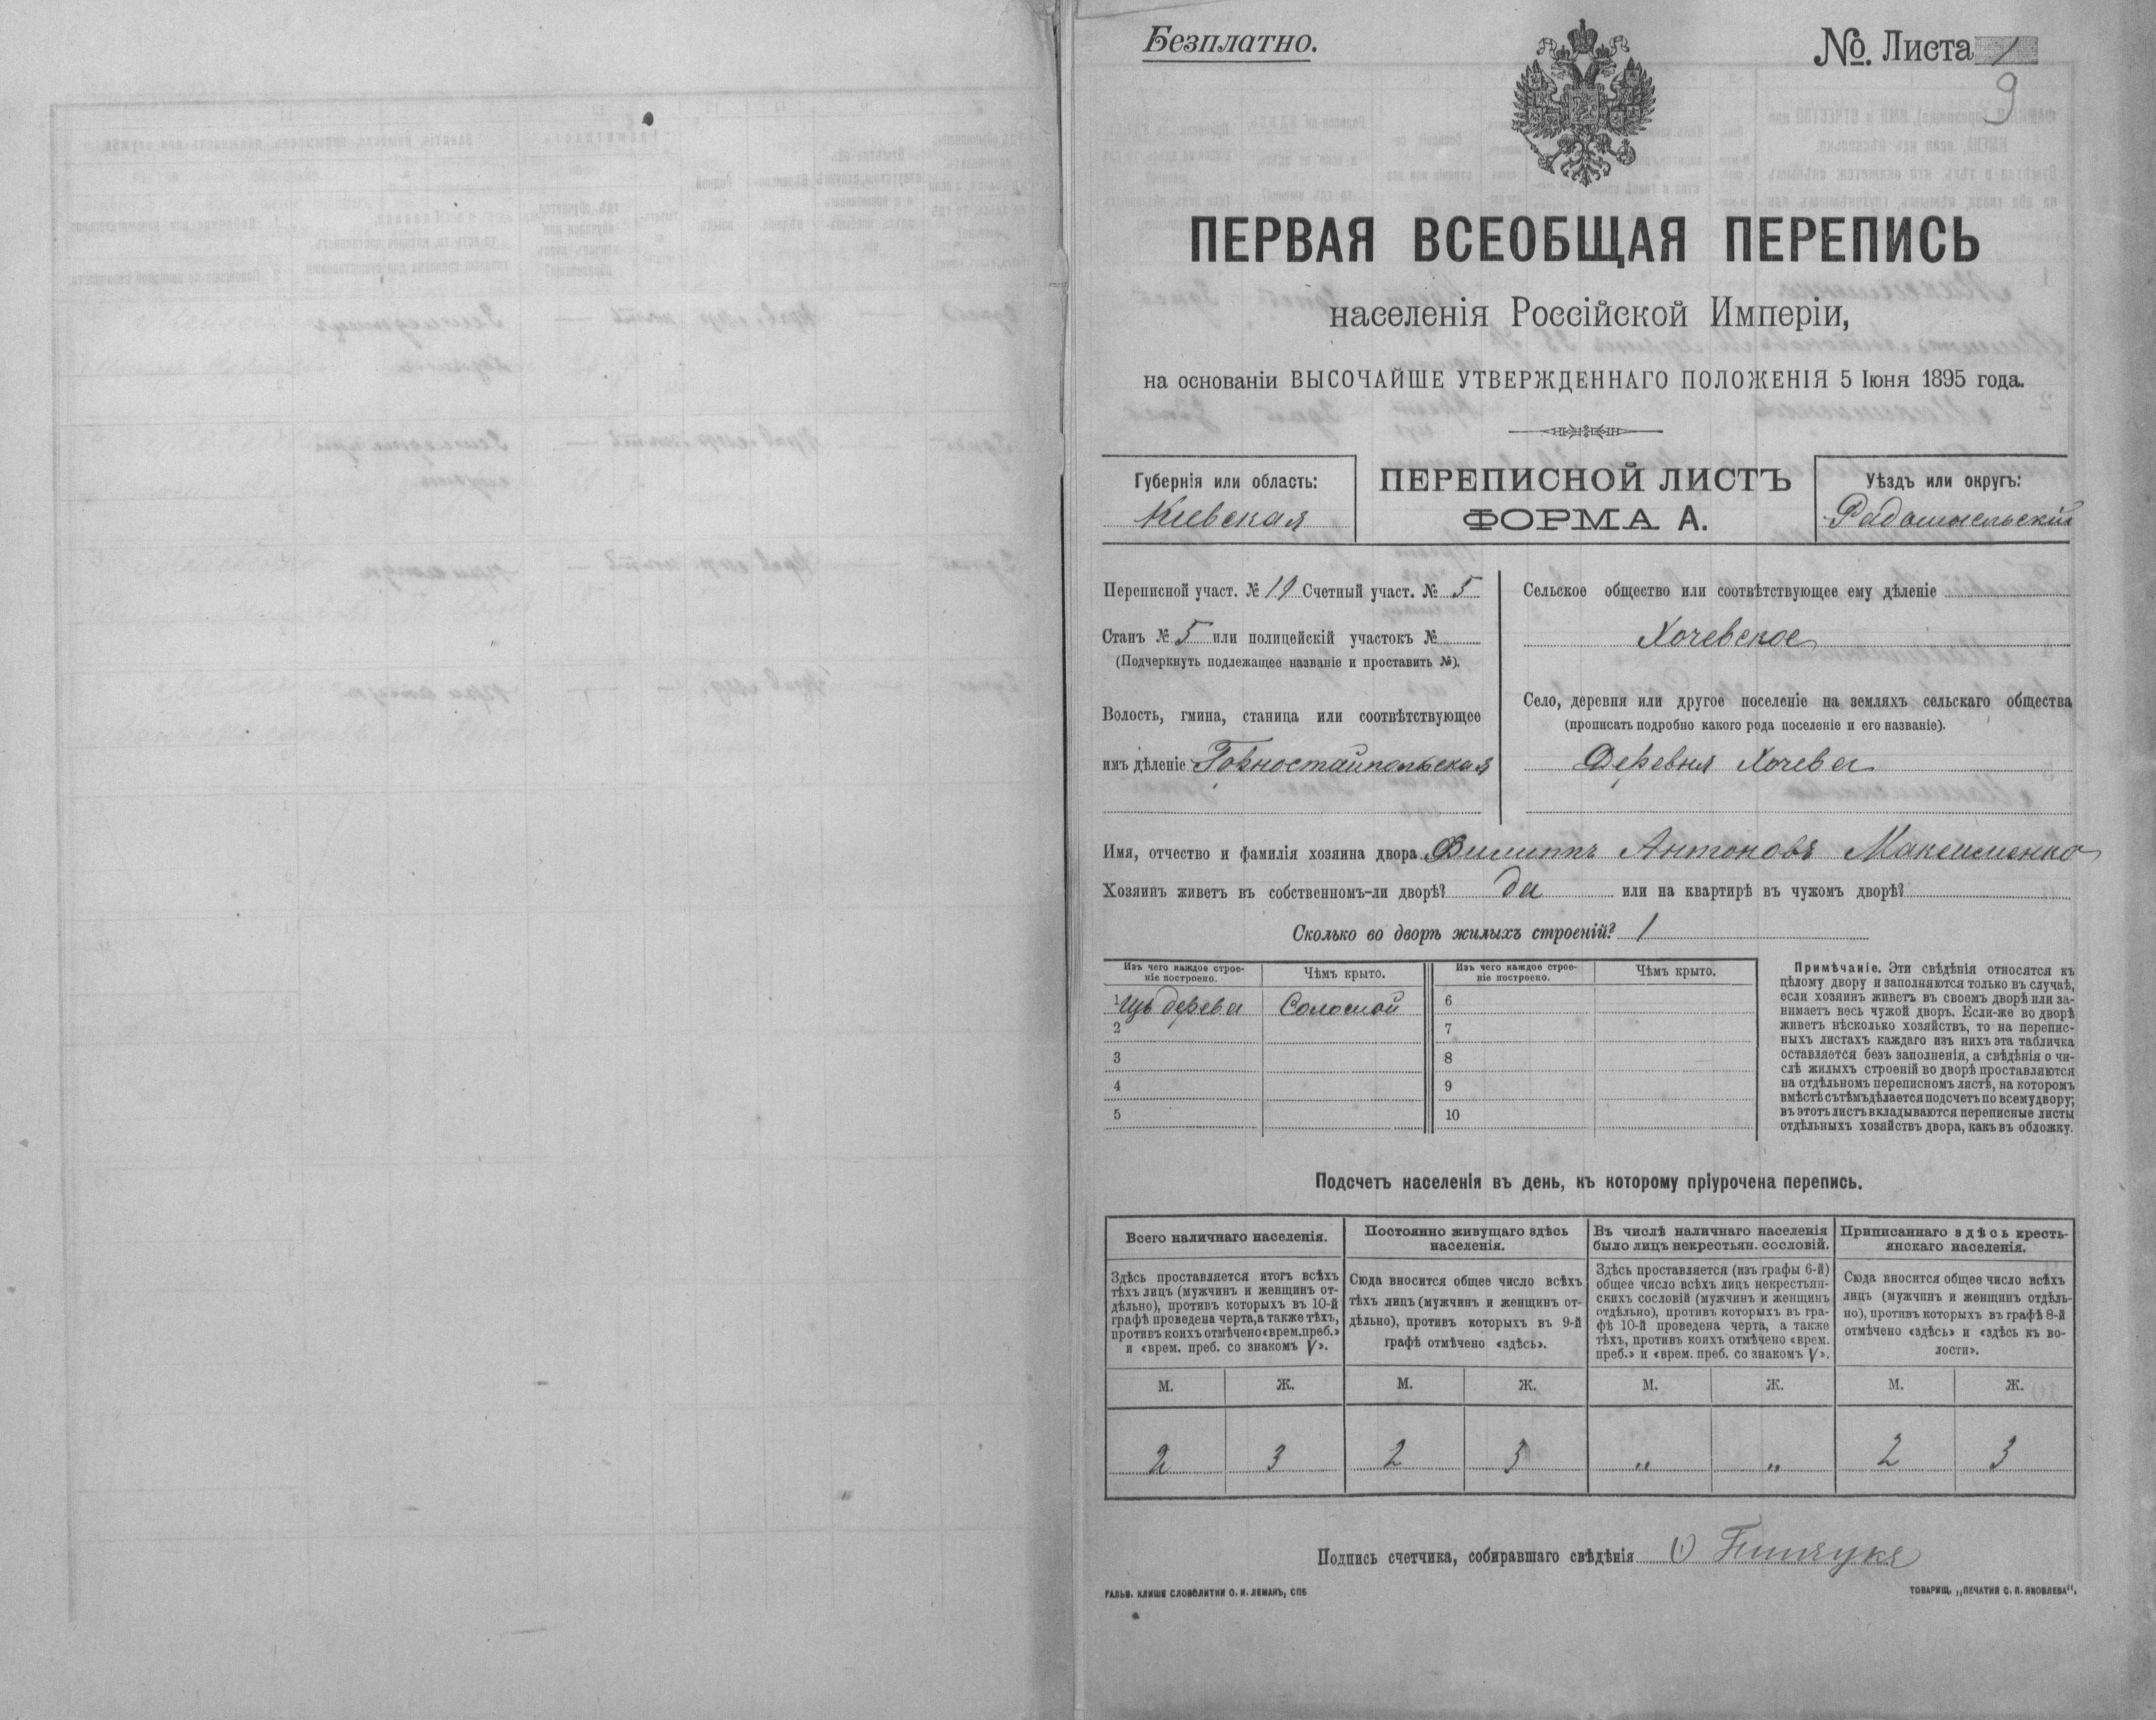 Безплатно.
№ Листа 1
9
ПЕРВАЯ ВСЕОБЩАЯ ПЕРЕПИСЬ
населенія Россійской Имперіи,
на основаніи ВЫСОЧАЙШЕ УТВЕРЖДЕННАГО ПОЛОЖЕНІЯ 5 Іюня 1895 года.
Губернія или область:
Киевская
ПЕРЕПИСНОЙ ЛИСТЪ
ФОРМА А.
Уѣздъ или округъ:
Радомысльский
Переписной участ. № 19 Счетный участ. № 5
Станъ № 5 или полицейскій участокъ №
(Подчеркнуть подлежащее названіе и проставить №).
Волость, гмина, станица или соотвѣтствующее
имъ дѣленіе Горностайпольская
Сельское общество или соотвѣтствующее ему дѣленіе
Хочевское
Село, деревня или другое поселеніе на земляхъ сельскаго общества
(прописать подробно какого рода поселеніе и его названіе).
Деревня Хочева
Имя, отчество и фамилія хозяина двора Филиппъ Антоновъ Максименко
Хозяинъ живетъ въ собственномъ-ли дворѣ? да или на квартирѣ въ чужомъ дворѣ?
Сколько во дворѣ жилыхъ строеній? 1
Изъ чего каждое строе-
ніе построено.
Чѣмъ крыто.
Изъ чего каждое строе-
ніе построено.
Чѣмъ крыто.
1 Изъ дерева Соломой 6
2 7
3 8
4 9
5 10
Примѣчаніе. Эти свѣдѣнія относятся къ
цѣлому двору и заполняются только въ случаѣ,
если хозяинъ живетъ въ своемъ дворѣ или за-
нимаетъ весь чужой дворъ. Если-же во дворѣ
живетъ нѣсколько хозяйствъ, то на перепис-
ныхъ листахъ каждаго изъ нихъ эта табличка
оставляется безъ заполненія, а свѣдѣнія о чи-
слѣ жилыхъ строеній во дворѣ проставляются
на отдѣльномъ переписномъ листѣ, на которомъ
вмѣстѣ съ тѣмъ дѣлается подсчетъ по всему двору;
въ этотъ листъ вкладываются переписные листы
отдѣльныхъ хозяйствъ двора, какъ въ обложку.
Подсчетъ населенія въ день, къ которому пріурочена перепись.
Всего наличнаго населенія.
Здѣсь проставляется итогъ всѣхъ
тѣхъ лицъ (мужчинъ и женщинъ от-
дѣльно), противъ которыхъ въ 10-й
графѣ проведена черта, а также тѣхъ,
противъ коихъ отмѣчено «врем. преб.»
и «врем. преб. со знакомъ V».
Постоянно живущаго здѣсь
населенія.
Сюда вносится общее число всѣхъ
тѣхъ лицъ (мужчинъ и женщинъ от-
дѣльно), противъ которыхъ въ 9-й
графѣ отмѣчено «здѣсь».
Въ числѣ наличнаго населенія
было лицъ некрестьян. сословій.
Здѣсь проставляется (изъ графы 6-й)
общее число всѣхъ лицъ некрестьян-
скихъ сословій (мужчинъ и женщинъ
отдѣльно), противъ которыхъ въ гра-
фѣ 10-й проведена черта, а также
тѣхъ, противъ коихъ отмѣчено «врем.
преб.» и «врем. преб. со знакомъ V».
Приписаннаго здѣсь кресть-
янскаго населенія.
Сюда вносится общее число всѣхъ
лицъ (мужчинъ и женщинъ отдѣль-
но), противъ которыхъ въ графѣ 8-й
отмѣчено «здѣсь» и «здѣсь къ во-
лости».
М. Ж. М. Ж. М. Ж. М. Ж.
2 3 2 3 „ „ 2 3
Подпись счетчика, собиравшаго свѣдѣнія
ГАЛЬВ. КЛИШЕ СЛОВОЛИТНИ О. И. ЛЕМАНЪ, СПБ
ТОВАРИЩ. „ПЕЧАТНЯ С. П. ЯКОВЛЕВА".